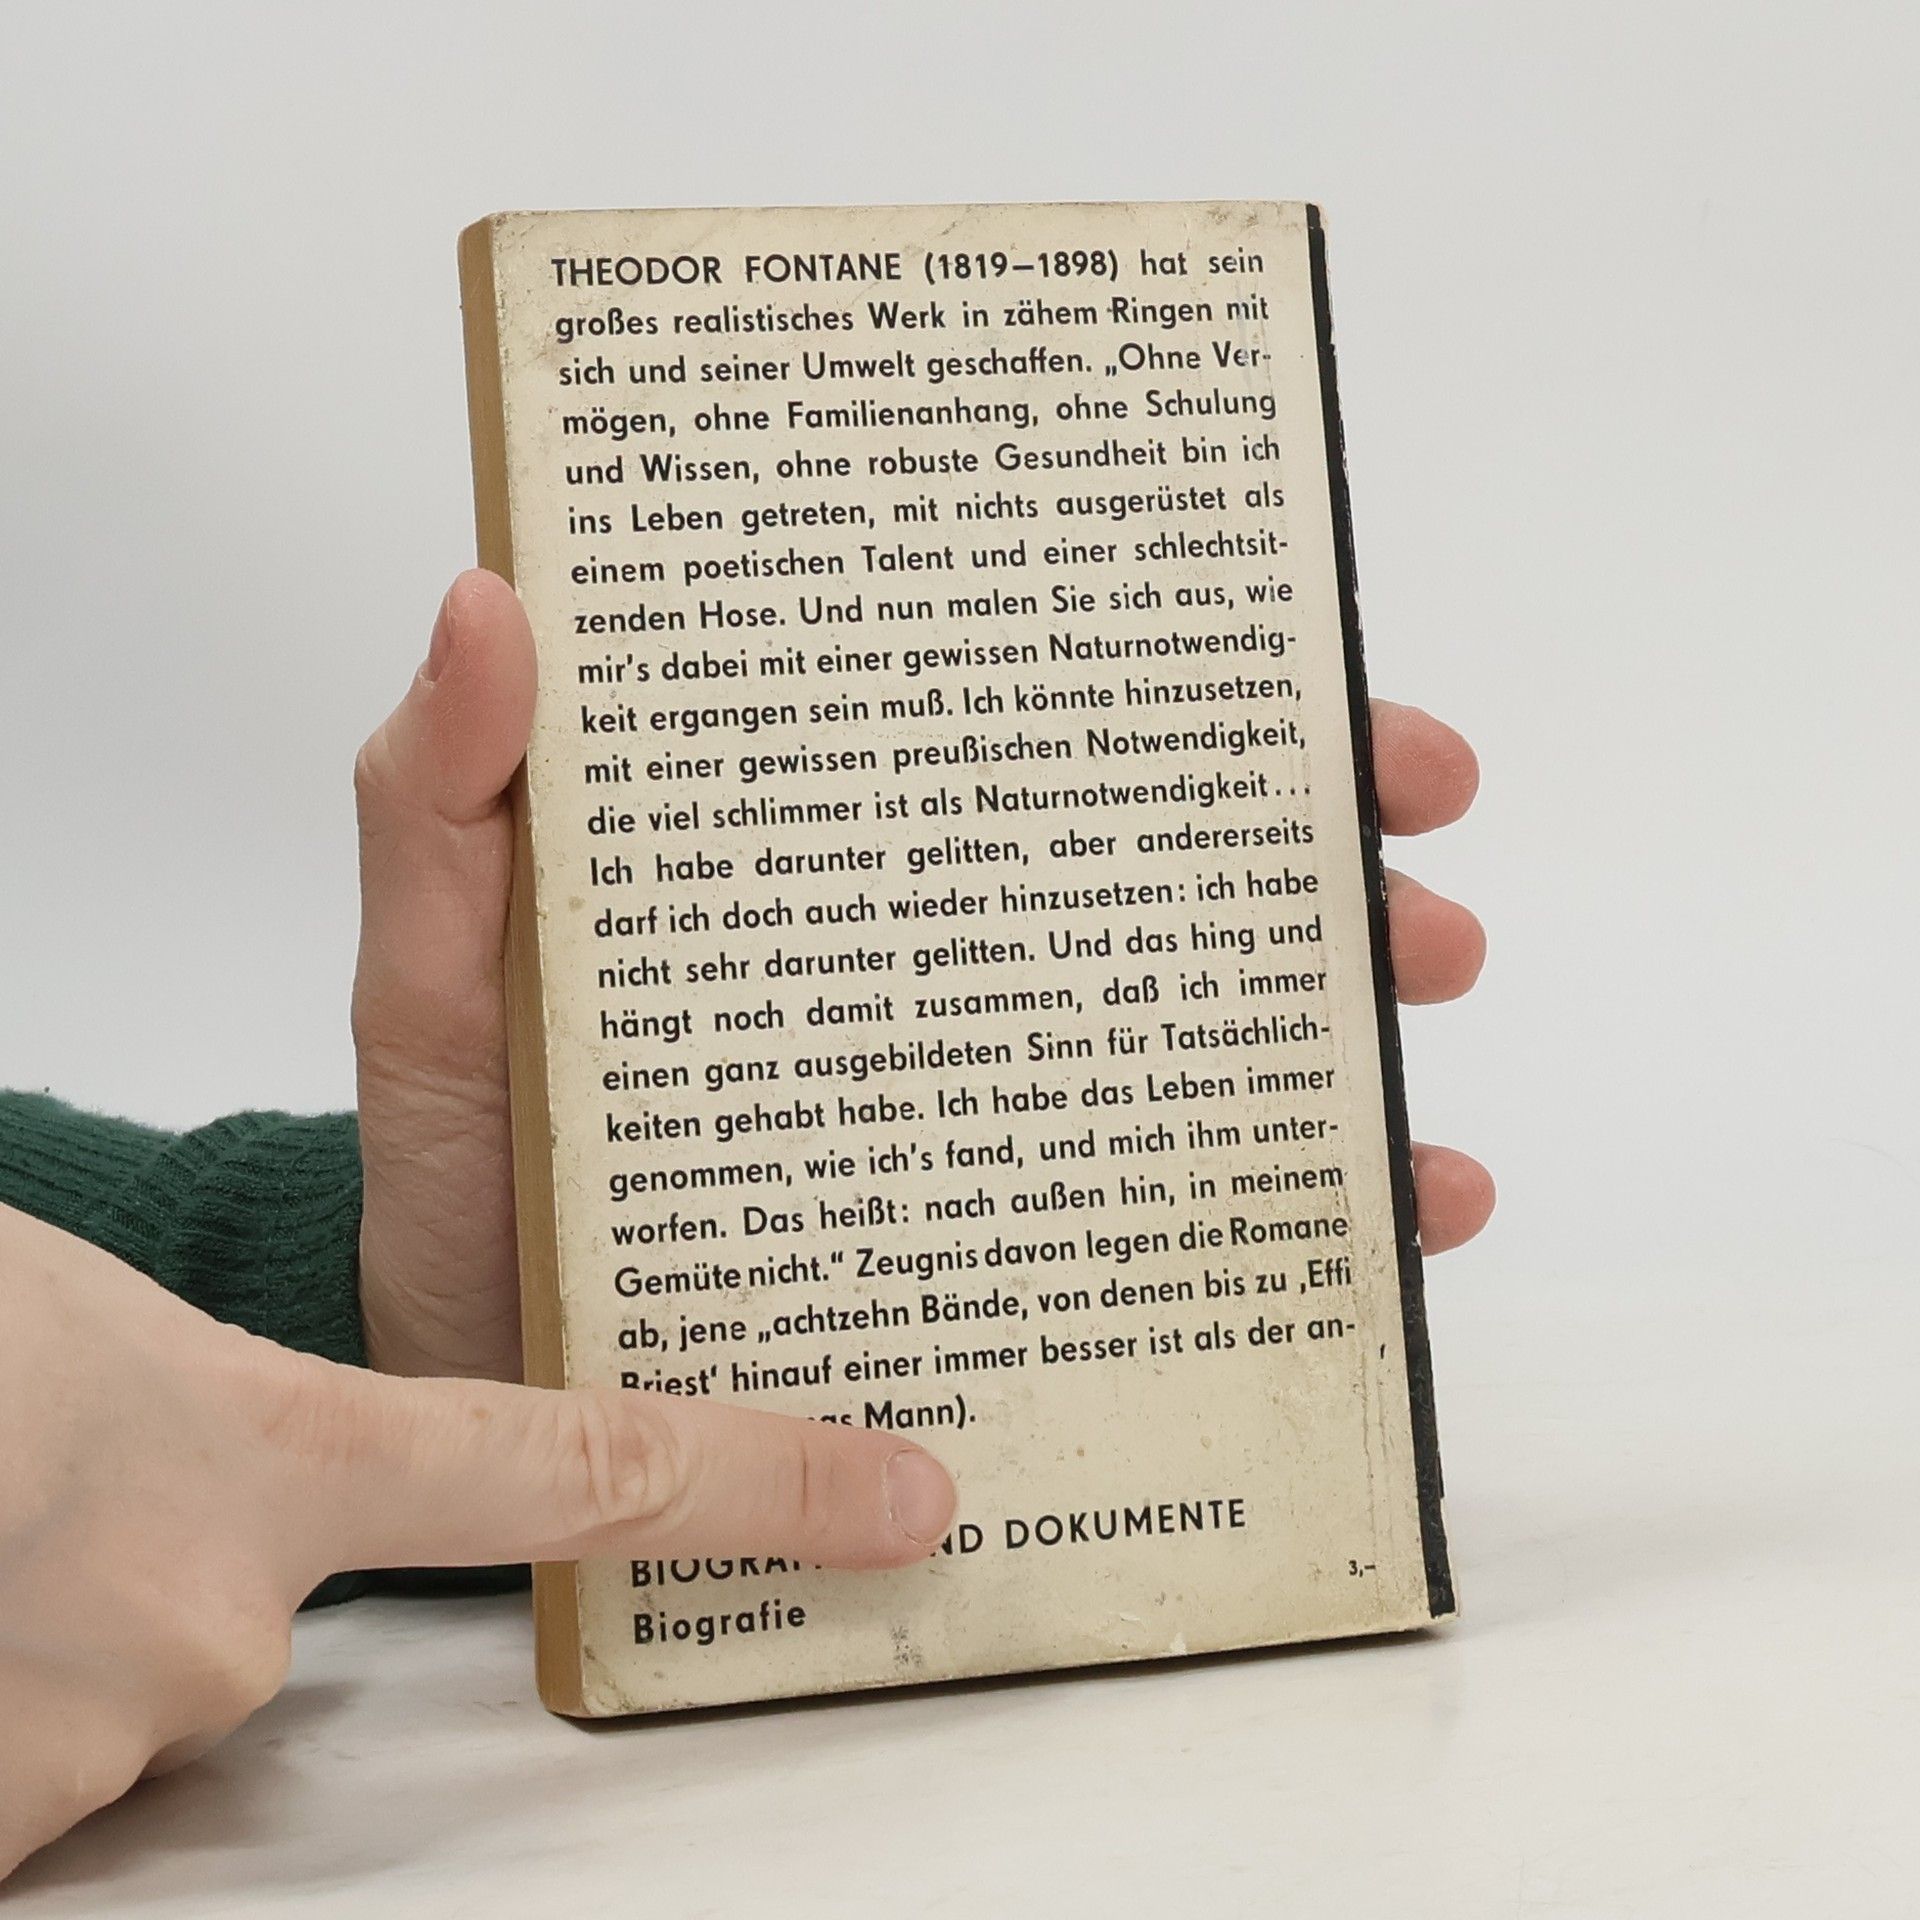 THEODOR FONTANE (1819–1898) hat sein
großes realistisches Werk in zähem Ringen mit
sich und seiner Umwelt geschaffen. „Ohne Ver-
mögen, ohne Familienanhang, ohne Schulung
und Wissen, ohne robuste Gesundheit bin ich
ins Leben getreten, mit nichts ausgerüstet als
einem poetischen Talent und einer schlechtsit-
zenden Hose. Und nun malen Sie sich aus, wie
mir's dabei mit einer gewissen Naturnotwendig-
keit ergangen sein muß. Ich könnte hinzusetzen,
mit einer gewissen preußischen Notwendigkeit,
die viel schlimmer ist als Naturnotwendigkeit...
Ich habe darunter gelitten, aber andererseits
darf ich doch auch wieder hinzusetzen: ich habe
nicht sehr darunter gelitten. Und das hing und
hängt noch damit zusammen, daß ich immer
einen ganz ausgebildeten Sinn für Tatsächlich-
keiten gehabt habe. Ich habe das Leben immer
genommen, wie ich's fand, und mich ihm unter-
worfen. Das heißt: nach außen hin, in meinem
Gemüte nicht.“ Zeugnis davon legen die Romane
ab, jene „achtzehn Bände, von denen bis zu ‚Effi
Briest‘ hinauf einer immer besser ist als der an-
Mann).
DOKUMENTE
3,–
Biografie